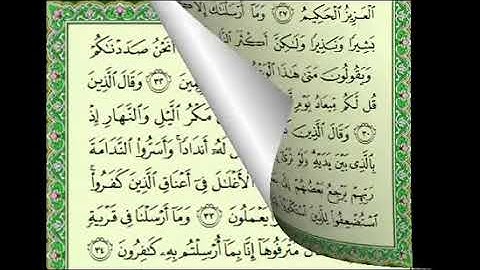 ٱلْعَزِيزُ ٱلْحَكِيمُ ٢٧ وَمَآ أَرْسَلْنَٰكَ إِلَّا
بَشِيرًا وَنَذِيرًا وَلَٰكِنَّ أَكْثَرَ
وَيَقُولُونَ مَتَىٰ هَٰذَا
قُل لَّكُم مِّيعَادُ يَوْمٍ
٣٠ وَقَالَ ٱلَّذِينَ
بِٱلَّذِى بَيْنَ يَدَيْهِ وَلَوْ تَرَىٰٓ
رَبِّهِمْ يَرْجِعُ بَعْضُهُمْ إِلَىٰ
ٱسْتُضْعِفُوا۟ لِلَّذِينَ
أَنَحْنُ صَدَدْنَٰكُمْ
وَقَالَ ٱلَّذِينَ
مَكْرُ ٱلَّيْلِ وَٱلنَّهَارِ إِذْ
لَهُۥٓ أَندَادًا وَأَسَرُّوا۟ ٱلنَّدَامَةَ
ٱلْأَغْلَٰلَ فِىٓ أَعْنَاقِ ٱلَّذِينَ كَفَرُوا۟
يَعْمَلُونَ ٣٣ وَمَآ أَرْسَلْنَا فِى قَرْيَةٍ
مُتْرَفُوهَآ إِنَّا بِمَآ أُرْسِلْتُم بِهِۦ كَٰفِرُونَ ٣٤